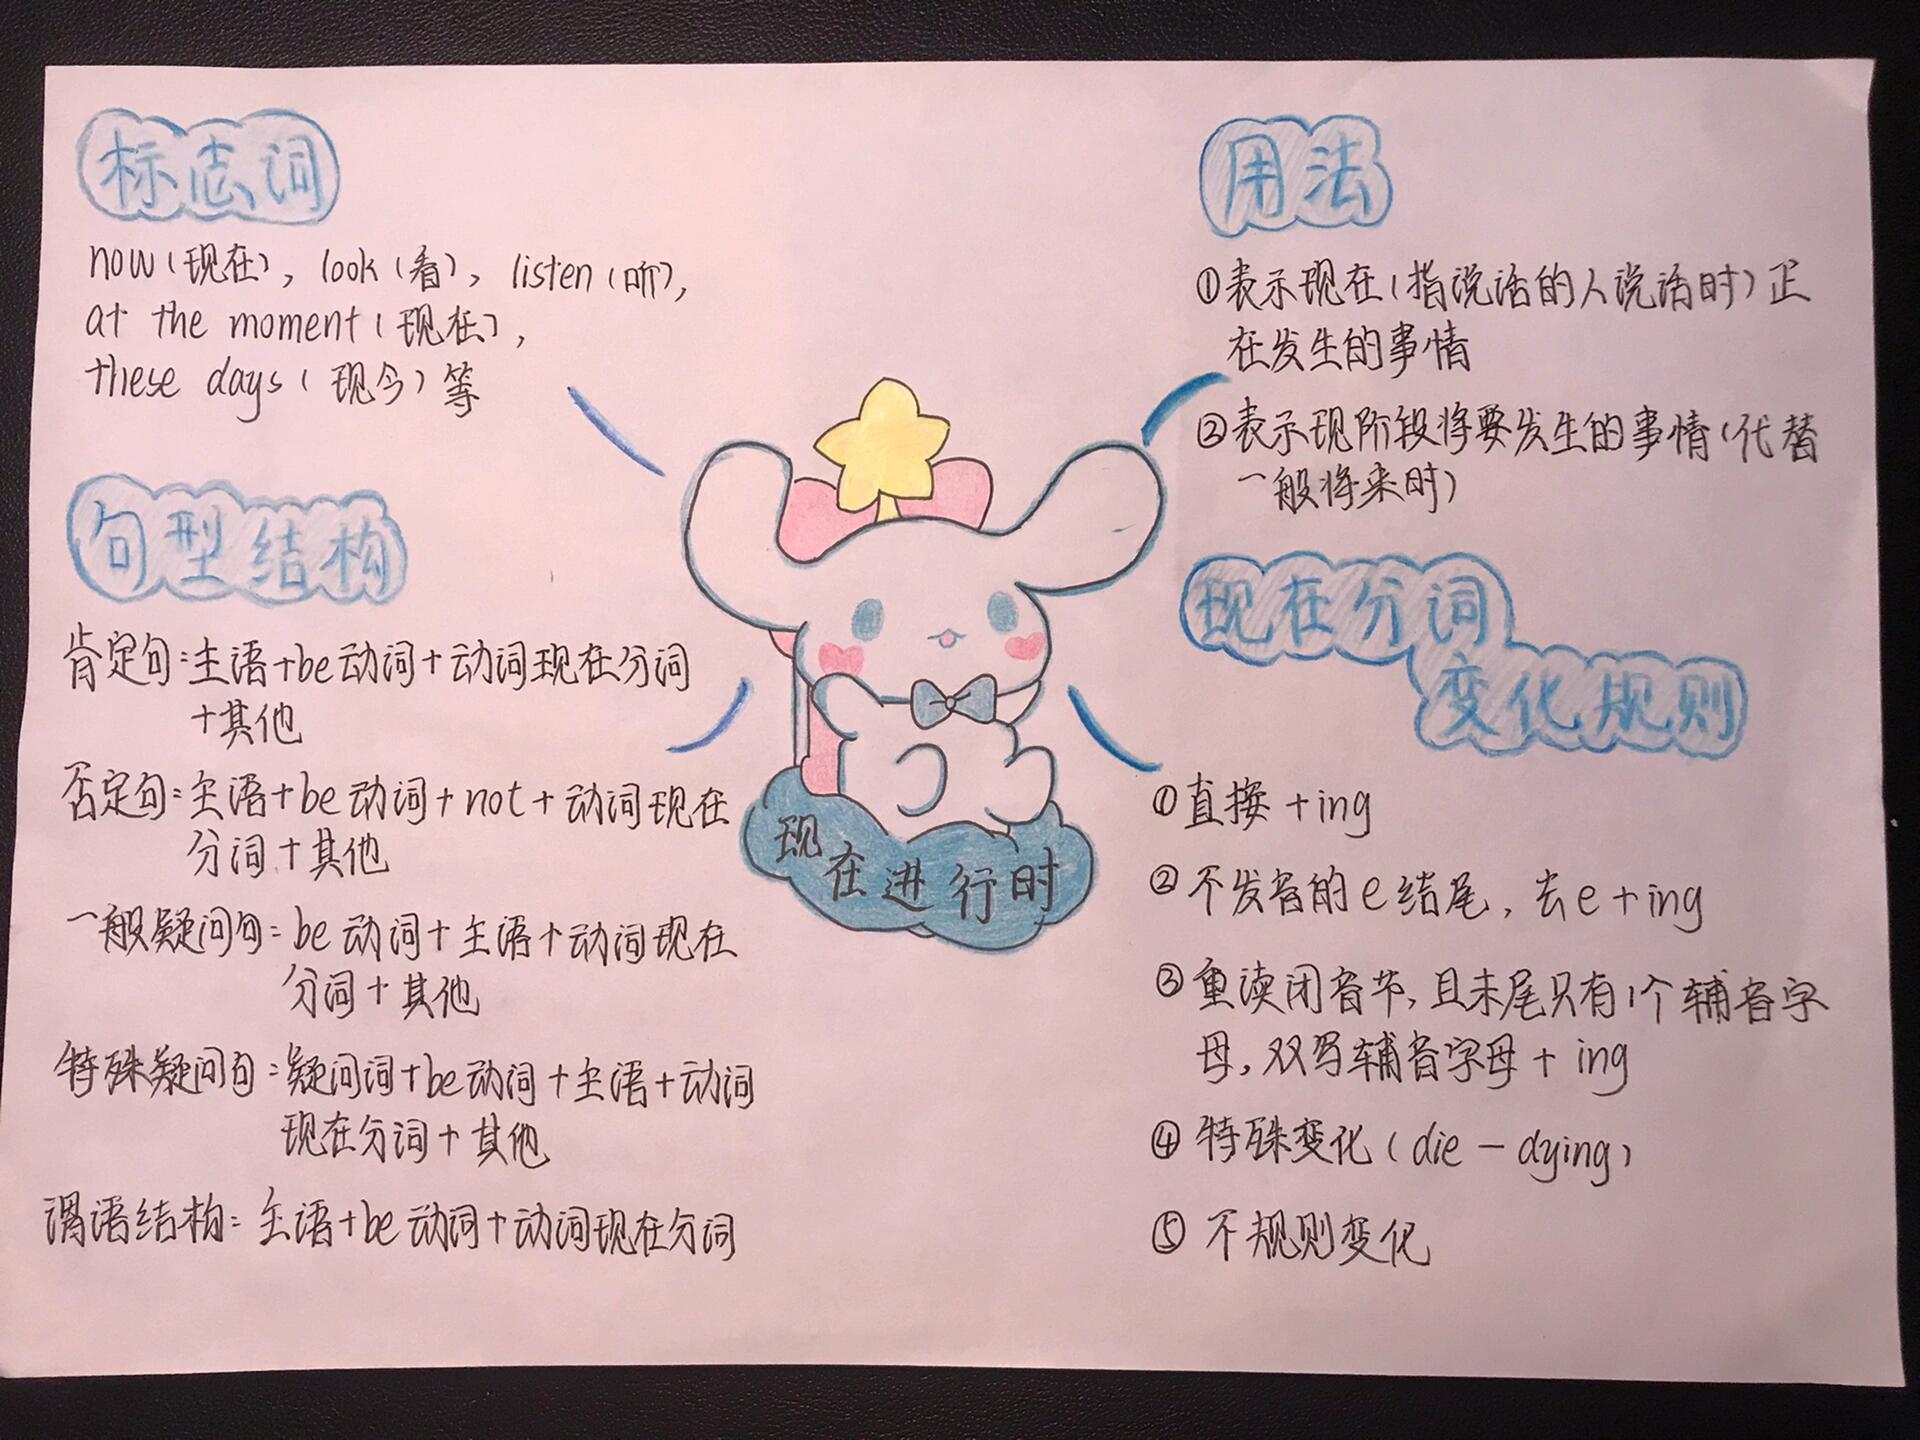 标志词
now(现在), look(看), listen(听),
at the moment(现在),
these days(现今)等
句型结构
肯定句:主语+be动词+动词现在分词
+其他
否定句:主语+be动词+not+动词现在
分词+其他
一般疑问句:be动词+主语+动词现在
分词+其他
特殊疑问句:疑问词+be动词+主语+动词
现在分词+其他
谓语结构:主语+be动词+动词现在分词
现在进行时
用法
①表示现在(指说话的人说话时)正
在发生的事情
②表示现阶段将要发生的事情(代替
一般将来时)
现在分词
变化规则
①直接+ing
②不发音的e结尾,去e+ing
③重读闭音节,且末尾只有1个辅音字
母,双写辅音字母+ing
④特殊变化(die-dying)
⑤不规则变化